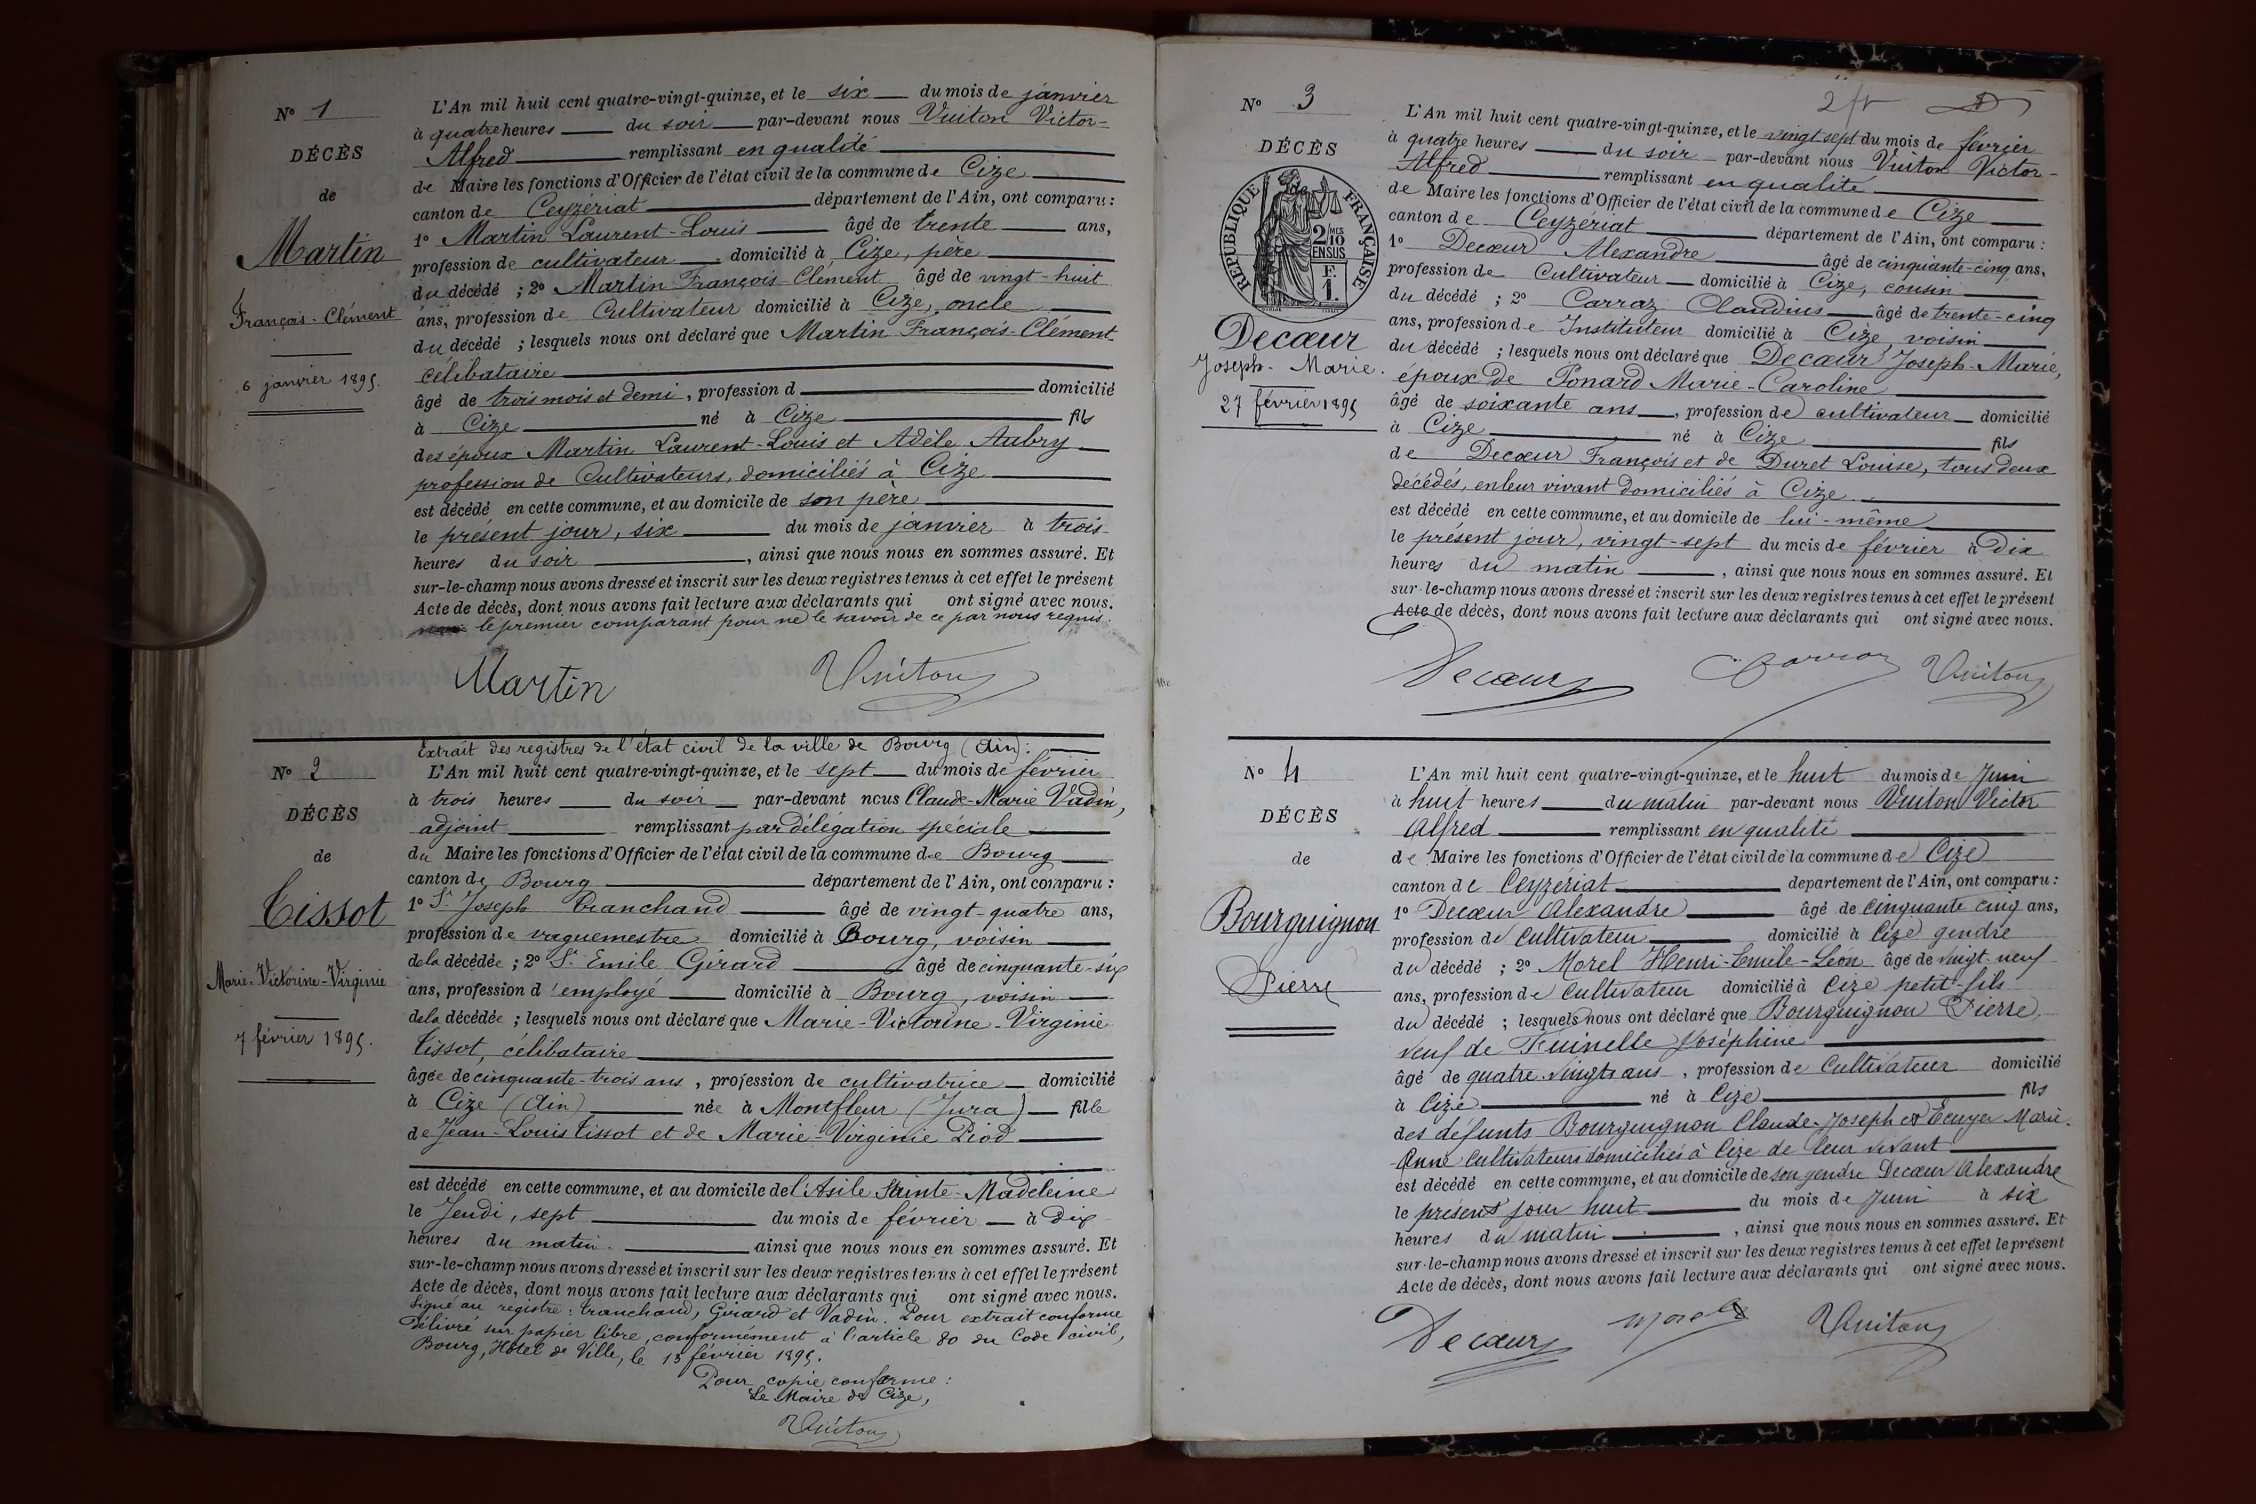 N° 1
DÉCÈS
de
Martin
François-Clément
6 janvier 1895.
L'An mil huit cent quatre-vingt-quinze, et le six du mois de janvier
à quatre heures du soir par-devant nous Vuiton Victor-
Alfred remplissant en qualité
de Maire les fonctions d'Officier de l'état civil de la commune de Cize
canton de Ceyzériat département de l'Ain, ont comparu :
1° Martin Laurent-Louis âgé de trente ans,
profession de cultivateur domicilié à Cize, père
du décédé ; 2° Martin François-Clément âgé de vingt-huit
ans, profession de Cultivateur domicilié à Cize, oncle
du décédé ; lesquels nous ont déclaré que Martin François-Clément
célibataire
âgé de trois mois et demi, profession d domicilié
à Cize né à Cize fils
des époux Martin Laurent-Louis et Adèle Aubry
profession de Cultivateurs, domiciliés à Cize
est décédé en cette commune, et au domicile de son père
le présent jour, six du mois de janvier à trois
heures du soir, ainsi que nous nous en sommes assuré. Et
sur-le-champ nous avons dressé et inscrit sur les deux registres tenus à cet effet le présent
Acte de décès, dont nous avons fait lecture aux déclarants qui ont signé avec nous.
le premier comparant pour ne le savoir de ce par nous requis.
Martin Vuiton
Extrait des registres de l'état civil de la ville de Bourg (Ain) :
N° 2
DÉCÈS
de
Tissot
Marie-Victorine-Virginie
7 février 1895.
L'An mil huit cent quatre-vingt-quinze, et le sept du mois de février
à trois heures du soir par-devant nous Claude-Marie Vadin,
adjoint remplissant par délégation spéciale
du Maire les fonctions d'Officier de l'état civil de la commune de Bourg
canton de Bourg département de l'Ain, ont comparu :
1° Sr Joseph Tranchand âgé de vingt-quatre ans,
profession de vaguemestre domicilié à Bourg, voisin
de la décédée ; 2° Sr Emile Girard âgé de cinquante-six
ans, profession d'employé domicilié à Bourg, voisin
de la décédée ; lesquels nous ont déclaré que Marie-Victorine-Virginie
Tissot, célibataire
âgée de cinquante-trois ans, profession de cultivatrice domicilié
à Cize (Ain) née à Montfleur (Jura) fille
de Jean-Louis Tissot et de Marie-Virginie Piod
est décédé en cette commune, et au domicile de l'Asile Sainte-Madeleine
le Jeudi, sept du mois de février à Dix
heures du matin. ainsi que nous nous en sommes assuré. Et
sur-le-champ nous avons dressé et inscrit sur les deux registres tenus à cet effet le présent
Acte de décès, dont nous avons fait lecture aux déclarants qui ont signé avec nous.
Signé au registre : Tranchand, Girard et Vadin. Pour extrait conforme
délivré sur papier libre, conformément à l'article 80 du Code civil,
Bourg, Hôtel de Ville, le 13 février 1895.
Pour copie conforme :
Le Maire de Cize,
Vuiton
2 fr
N° 3
DÉCÈS
de
RÉPUBLIQUE FRANÇAISE
2/10 MES
EN SUS
F.
1.
Decœur
Joseph-Marie.
27 février 1895
L'An mil huit cent quatre-vingt-quinze, et le vingt sept du mois de février
à quatre heures du soir par-devant nous Vuiton Victor-
Alfred remplissant en qualité
de Maire les fonctions d'Officier de l'état civil de la commune de Cize
canton de Ceyzériat département de l'Ain, ont comparu :
1° Decœur Alexandre âgé de cinquante-cinq ans,
profession de Cultivateur domicilié à Cize, cousin
du décédé ; 2° Carraz Claudius âgé de trente-cinq
ans, profession de Instituteur domicilié à Cize, voisin
du décédé ; lesquels nous ont déclaré que Decœur Joseph-Marie,
époux de Ponard Marie-Caroline
âgé de soixante ans, profession de cultivateur domicilié
à Cize né à Cize fils
de Decœur François et de Duret Louise, tous deux
décédés, en leur vivant domiciliés à Cize
est décédé en cette commune, et au domicile de lui-même
le présent jour, vingt-sept du mois de février à Dix
heures du matin, ainsi que nous nous en sommes assuré. Et
sur-le-champ nous avons dressé et inscrit sur les deux registres tenus à cet effet le présent
Acte de décès, dont nous avons fait lecture aux déclarants qui ont signé avec nous.
Decœur Carraz Vuiton
N° 4
DÉCÈS
de
Bourguignon
Pierre
L'An mil huit cent quatre-vingt-quinze, et le huit du mois de Juin
à huit heures du matin par-devant nous Vuiton Victor
Alfred remplissant en qualité
de Maire les fonctions d'Officier de l'état civil de la commune de Cize
canton de Ceyzériat département de l'Ain, ont comparu :
1° Decœur Alexandre âgé de Cinquante cinq ans,
profession de Cultivateur domicilié à Cize gendre
du décédé ; 2° Morel Henri-Emile-Léon âgé de vingt-neuf
ans, profession de Cultivateur domicilié à Cize petit-fils
du décédé ; lesquels nous ont déclaré que Bourguignon Pierre,
veuf de Joséphine
âgé de quatre vingts ans, profession de Cultivateur domicilié
à Cize né à Cize fils
des défunts Bourguignon Claude-Joseph et Ecuyer Marie-
Anne Cultivateurs domiciliés à Cize de leur vivant
est décédé en cette commune, et au domicile de son gendre Decœur Alexandre
le présent jour huit du mois de Juin à six
heures du matin, ainsi que nous nous en sommes assuré. Et
sur-le-champ nous avons dressé et inscrit sur les deux registres tenus à cet effet le présent
Acte de décès, dont nous avons fait lecture aux déclarants qui ont signé avec nous.
Decœur Morel Vuiton